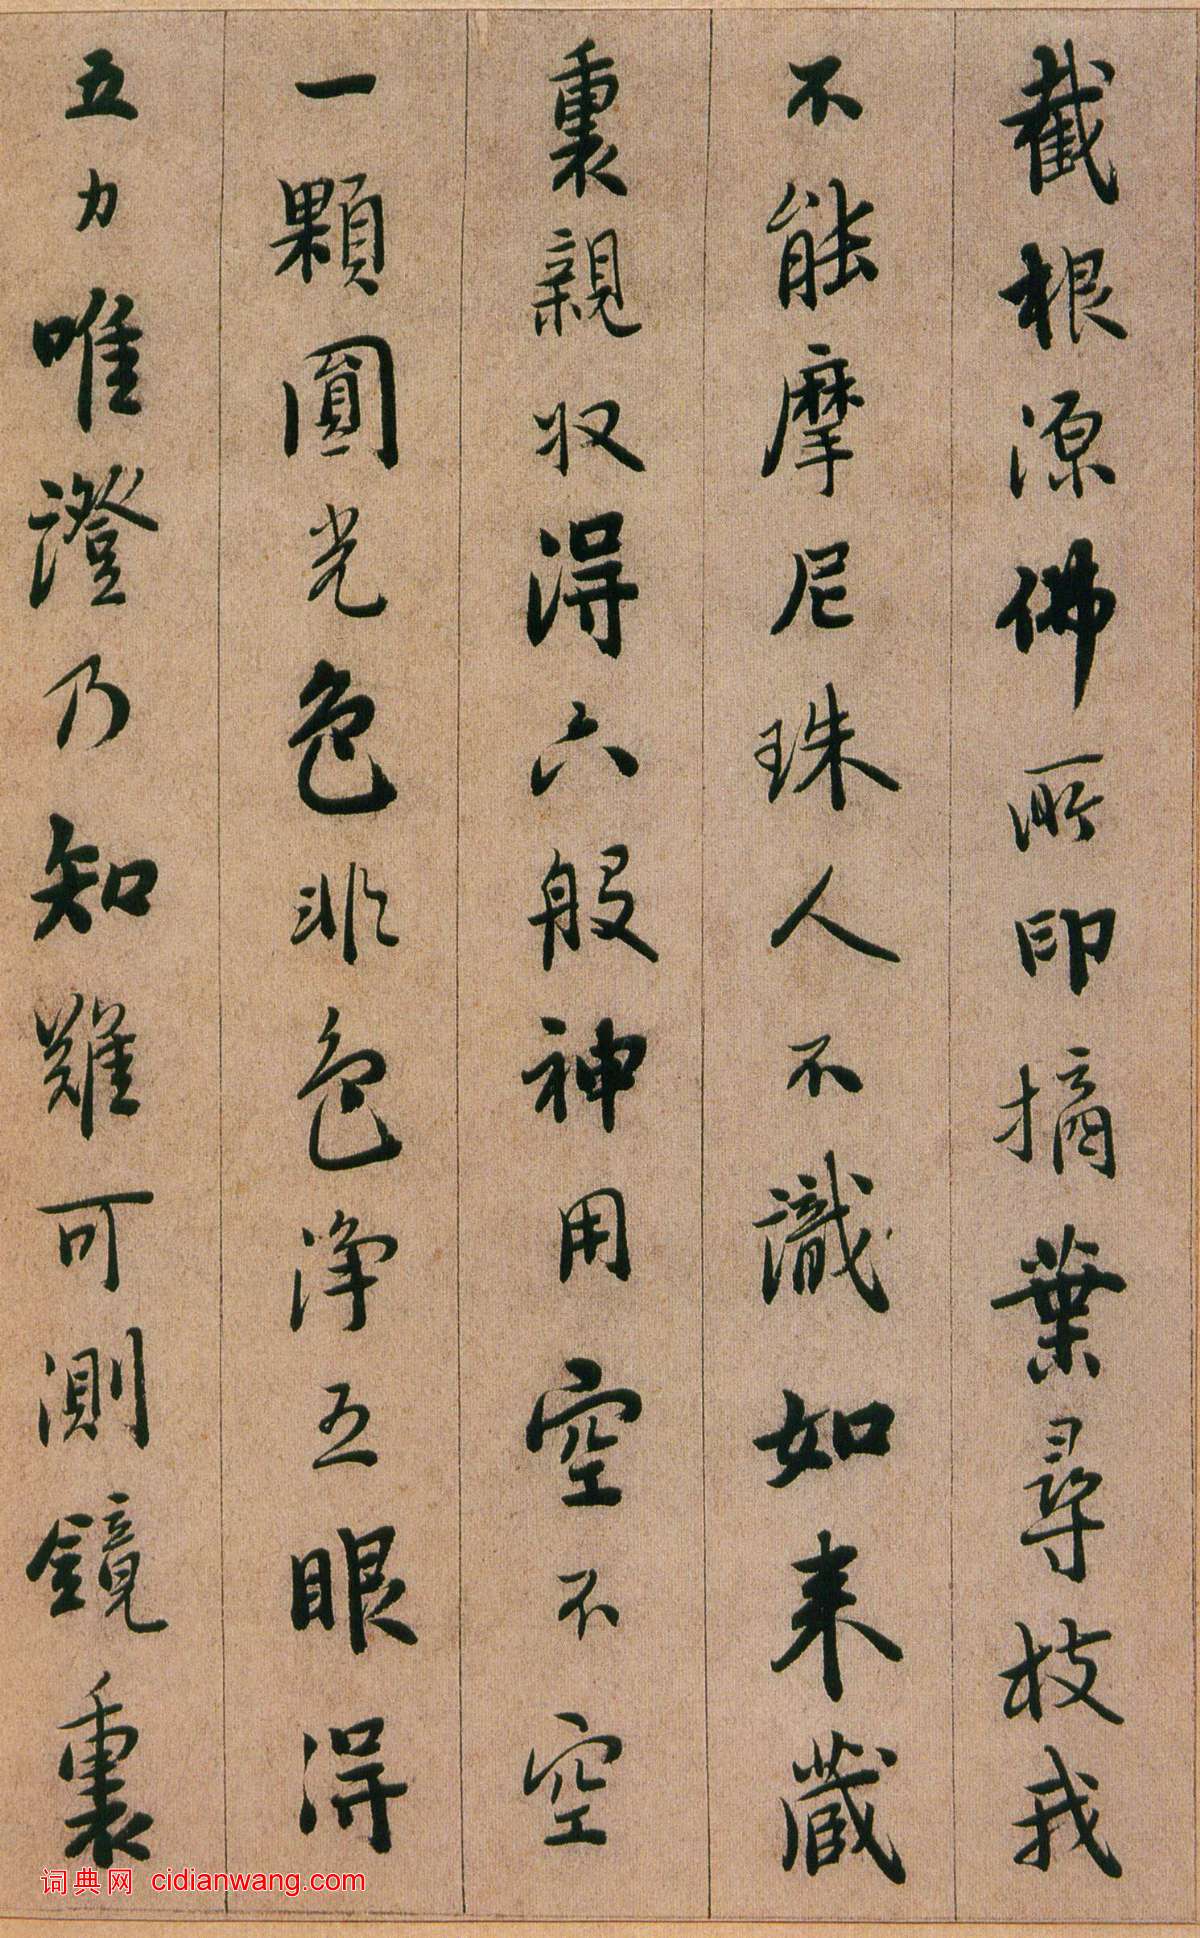 截根源佛所印摘葉尋枝我
不能摩尼珠人不識如来蔵
裏親収得六般神用空不空
一顆圓光色非色浄五眼得
五力唯證乃知難可測鏡裏
词典网 cidianwang.com